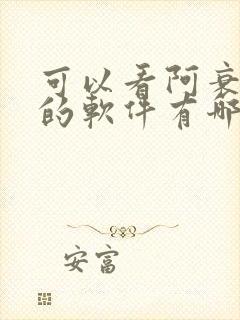 可以看阿衰
的軟件有哪
安富